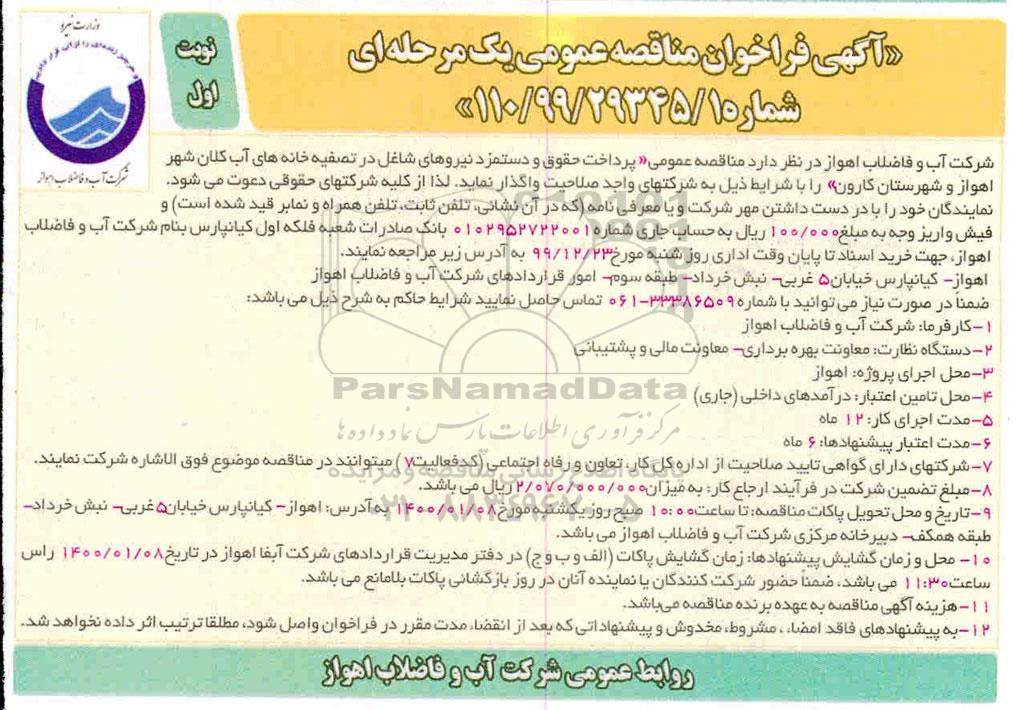 وزارت نیرو
شرکت آب و فاضلاب اهواز
نوبت
اول
«آگهی فراخوان مناقصه عمومی یک مرحله ای
شماره ۱۱۰/۹۹/۲۹۳۴۵/۱»
شرکت آب و فاضلاب اهواز در نظر دارد مناقصه عمومی« پرداخت حقوق و دستمزد نیروهای شاغل در تصفیه خانه های آب کلان شهر
اهواز و شهرستان کارون» را با شرایط ذیل به شرکتهای واجد صلاحیت واگذار نماید. لذا از کلیه شرکتهای حقوقی دعوت می شود.
نمایندگان خود را با در دست داشتن مهر شرکت و یا معرفی نامه (که در آن نشانی، تلفن ثابت، تلفن همراه و نمابر قید شده است) و
فیش واریز وجه به مبلغ ۱۰۰/۰۰۰ ریال به حساب جاری شماره ۰۱۰۲۹۵۲۷۲۲۰۰۱ بانک صادرات شعبه فلکه اول کیانپارس بنام شرکت آب و فاضلاب
اهواز، جهت خرید اسناد تا پایان وقت اداری روز شنبه مورخ ۹۹/۱۲/۲۳ به آدرس زیر مراجعه نمایند.
اهواز- کیانپارس خیابان ۵ غربی- نبش خرداد- طبقه سوم- امور قراردادهای شرکت آب و فاضلاب اهواز
ضمناً در صورت نیاز می توانید با شماره ۳۳۳۸۶۵۰۹-۰۶۱ تماس حاصل نمایید شرایط حاکم به شرح ذیل می باشد:
۱-کارفرما: شرکت آب و فاضلاب اهواز
۲-دستگاه نظارت: معاونت بهره برداری- معاونت مالی و پشتیبانی
۳-محل اجرای پروژه: اهواز
۴-محل تامین اعتبار: درآمدهای داخلی (جاری)
۵-مدت اجرای کار: ۱۲ ماه
۶-مدت اعتبار پیشنهادها: ۶ ماه
۷-شرکتهای دارای گواهی تایید صلاحیت از اداره کل کار، تعاون و رفاه اجتماعی (کد فعالیت ۷) میتوانند در مناقصه موضوع فوق الاشاره شرکت نمایند.
۸-مبلغ تضمین شرکت در فرآیند ارجاع کار: به میزان ۲/۰۷۰/۰۰۰/۰۰۰ ریال می باشد.
۹-تاریخ و محل تحویل پاکات مناقصه: تا ساعت ۱۰:۰۰ صبح روز یکشنبه مورخ ۱۴۰۰/۰۱/۰۸ به آدرس: اهواز- کیانپارس خیابان ۵ غربی- نبش خرداد-
طبقه همکف- دبیرخانه مرکزی شرکت آب و فاضلاب اهواز می باشد.
۱۰- محل و زمان گشایش پیشنهادها: زمان گشایش پاکات (الف و ب و ج) در دفتر مدیریت قراردادهای شرکت آبفا اهواز در تاریخ ۱۴۰۰/۰۱/۰۸ راس
ساعت ۱۱:۳۰ می باشد، ضمناً حضور شرکت کنندگان یا نماینده آنان در روز بازگشائی پاکات بلامانع می باشد.
۱۱-هزینه آگهی مناقصه به عهده برنده مناقصه می‌باشد.
۱۲-به پیشنهادهای فاقد امضاء، مشروط، مخدوش و پیشنهاداتی که بعد از انقضاء مدت مقرر در فراخوان واصل شود، مطلقا ترتیب اثر داده نخواهد شد.
روابط عمومی شرکت آب و فاضلاب اهواز
ParsNamadData
مرکز فرآوری اطلاعات پارس نماد داده ها